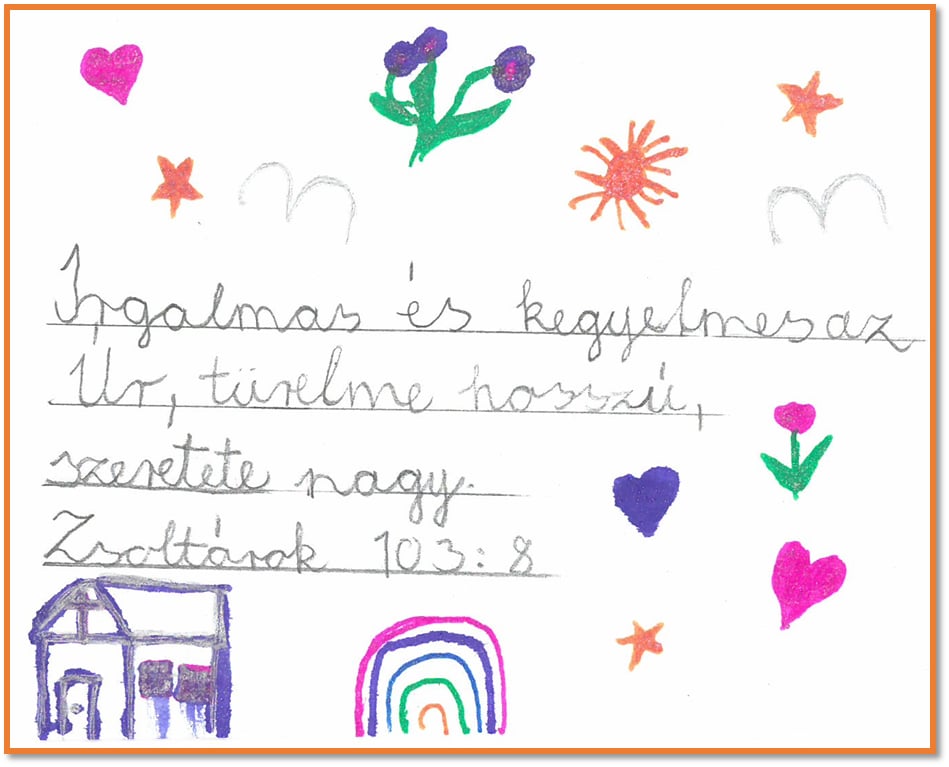 Irgalmas és kegyelmes az
Úr, türelme hosszú,
szeretete nagy.
Zsoltárok 103:8